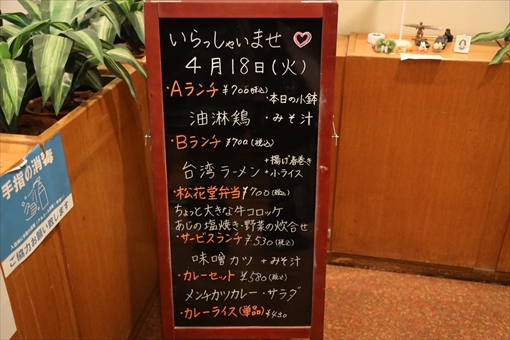 いらっしゃいませ♡
4月18日(火)
・Aランチ ¥700(税込)
・本日の小鉢
油淋鶏 ・みそ汁
・Bランチ ¥700(税込)
+揚げ春巻き
台湾ラーメン +小ライス
・松花堂弁当 ¥700(税込)
ちょっと大きな牛コロッケ
あじの塩焼き・野菜の炊合せ
・サービスランチ ¥530(税込)
味噌カツ +みそ汁
・カレーセット ¥580(税込)
メンチカツカレー・サラダ
・カレーライス(単品) ¥430
手指の消毒
ご協力お願い致します